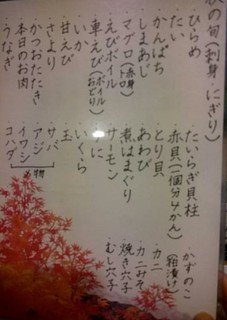 の旬(刺身 にぎり)
・ひらめ
・たい
・かんぱち
・しまあじ
・マグロ(赤身 トロ)
・えびボイル
・車えび(ボイル おどり)
・甘えび
・さより
・いか
・かつおたたき
・本日のお肉
・うなぎ
・たいらぎ貝柱
・赤貝(一個分4かん)
・とり貝
・あわび
・煮はまぐり
・サーモン
・うに
・いくら
・玉
・サバ
・アジ
・イワシ
・コハダ
光物
・かずのこ
・(箱漬け)
・カニ
・カニみそ
・焼き穴子
・むし穴子